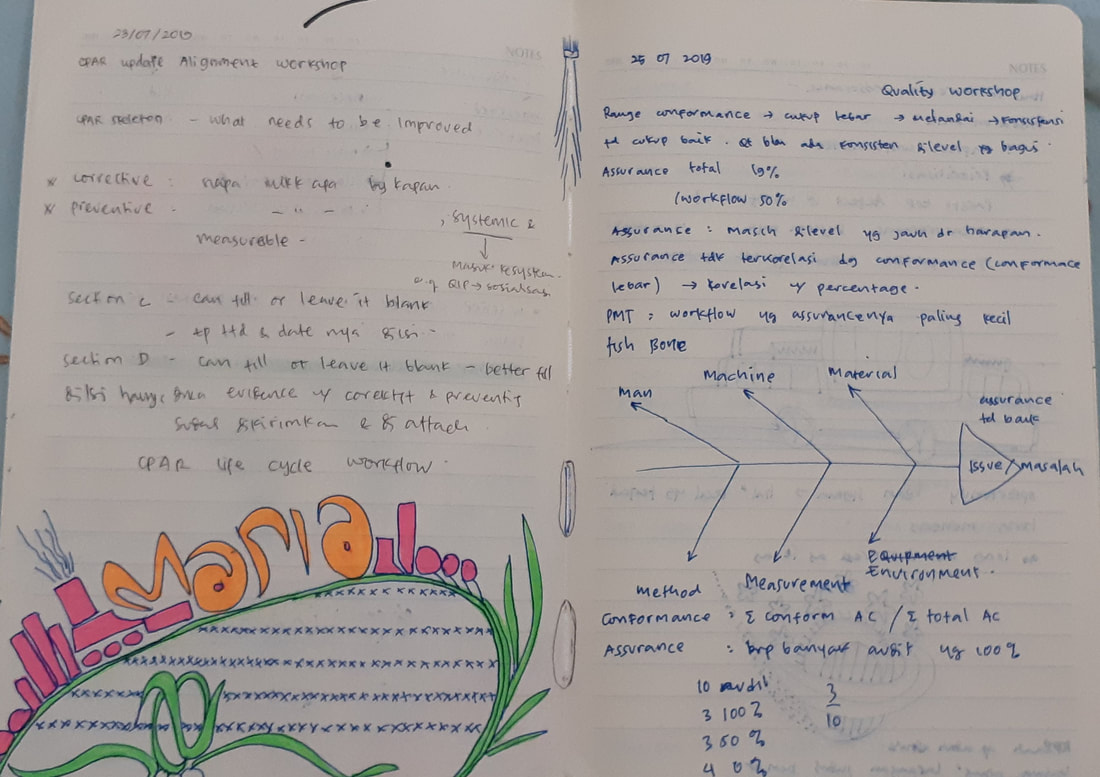 23/07/2019
CPAR update Alignment workshop
CPAR skeleton - what needs to be improved
* corrective : kapan
* preventive - - " -
measurable -
, systemic &
masuk kesystem
e.g QIP → sosialisasi
Section C - can fill or leave it blank
- tp ttd & date nya diisi -
Section D - can fill or leave it blank - better fill
diisi evidence corektif & preventif
sudah dikirimkan & di attach
CPAR life cycle workflow
Maria
25 07 2019
NOTES
Quality workshop
Range conformance → cukup lebar → melandai → konsistensi
td cukup baik. Qt blm ada konsisten dilevel yg bagus.
Assurance total 19%
(workflow 50%
Assurance : masih dilevel yg jauh dr harapan.
Assurance tdk terkorelasi dg conformance (conformace
lebar) → korelasi percentage.
PMT : workflow yg assurancenya paling kecil
fish Bone
Man
Machine
Material
assurance
td baik
Issue/masalah
Method
Measurement
Equipment
Environment.
Conformance : Σ conform AC / Σ total AC
Assurance : brp banyak audit yg 100%
10 audit
3 100%
3 50%
4 0%
3
10